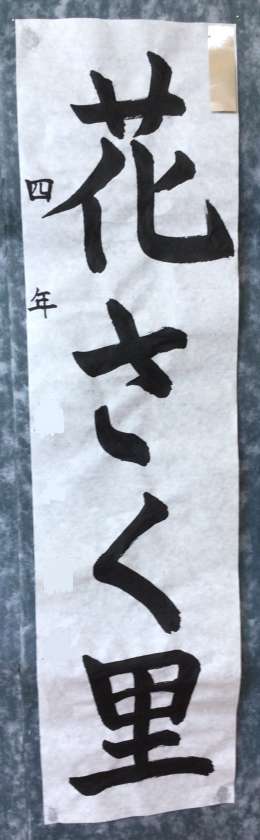 花さく里
四年